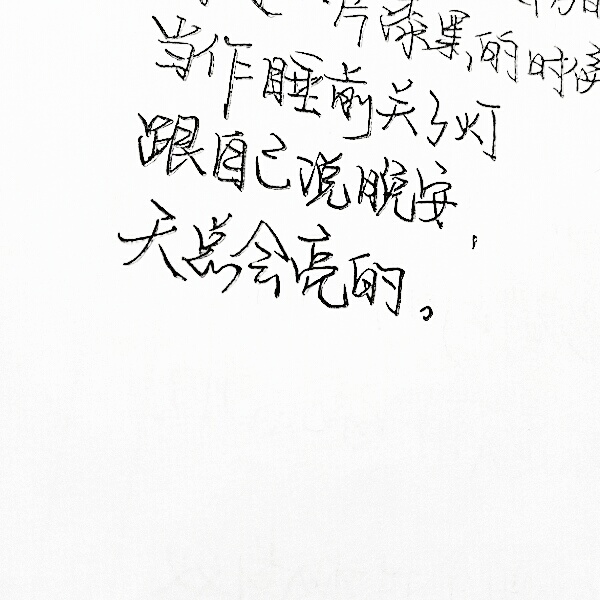 片漆黑的时候
当作睡前关了灯
跟自己说晚安,
天总会亮的。